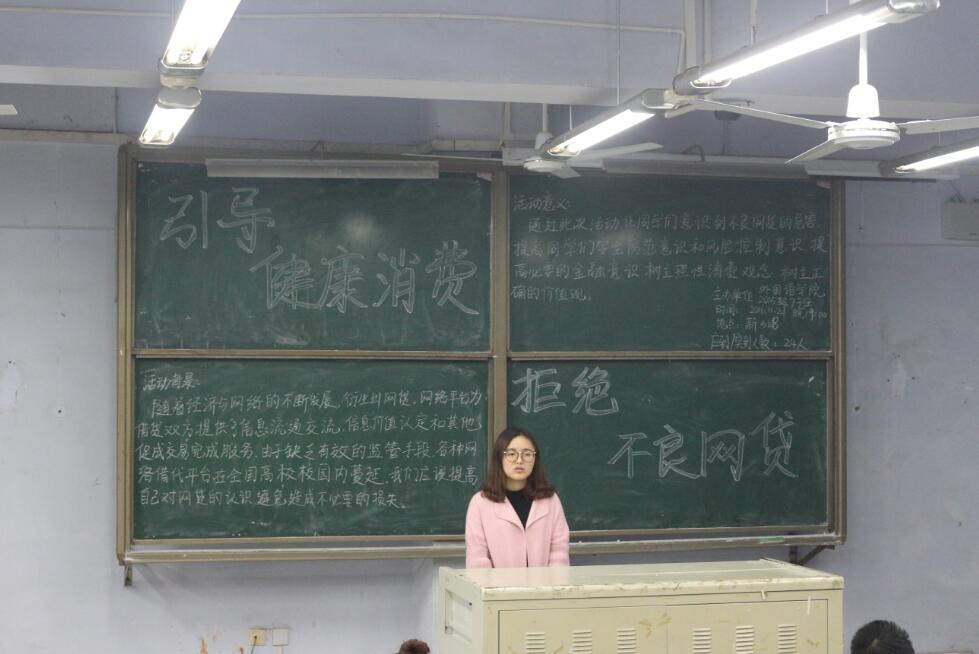 引导
健康消费
活动意义:
通过此次活动让同学们意识到不良网贷的危害,
提高同学们学生防范意识和风险控制意识,提
高必要的金融意识,树立理性消费观念,树立正
确的价值观。
主办单位 外国语学院
时间: 2016.11.21
地点:
应到/实到人数: 24人
活动背景:
随着经济与网络的不断发展,衍生出网贷,网络平台为
借贷双方提供了信息流通交流,信息价值认定和其他
促成交易完成服务。由于缺乏有效的监管手段,各种网
络借代平台在全国高校校园内蔓延,我们应该提高
自己对网贷的认识,避免造成不必要的损失。
拒绝
不良网贷